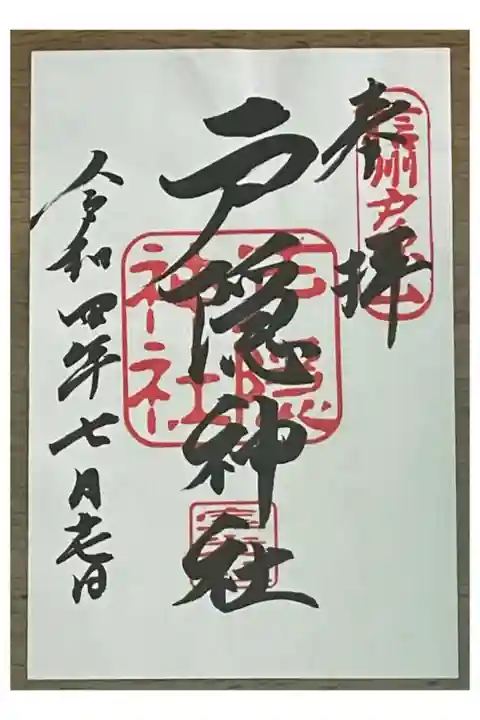 奉拝
信州戸隠山
戸隠神社
戸隠神社
令和四年七月十七日